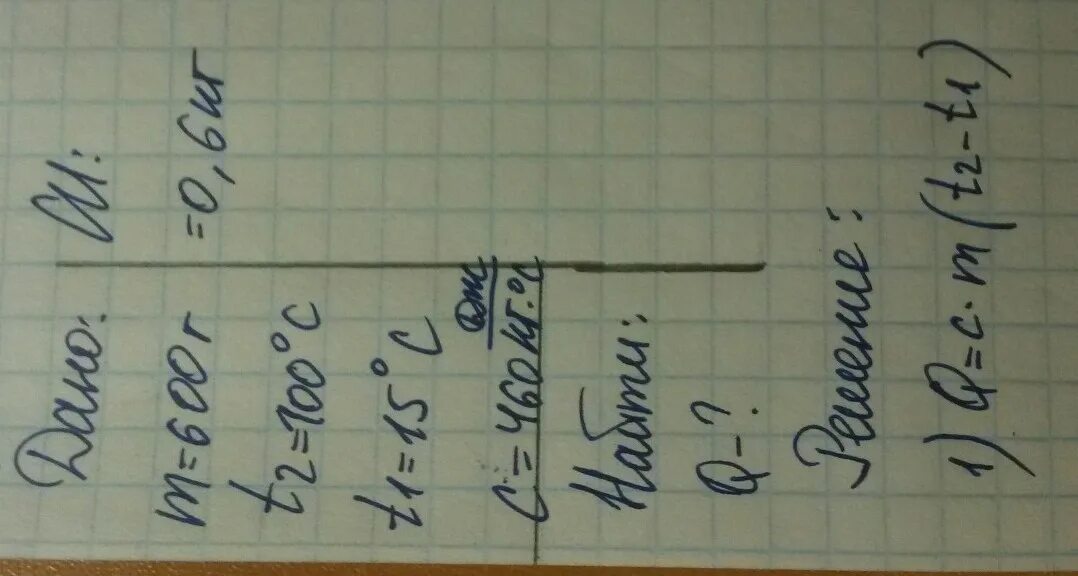 Дано: СИ:
m=600г =0,6кг
t2=100°C
t1=15°C
C=460 Дж/кг·°C
Найти:
Q-?
Решение:
1) Q=c·m(t2-t1)